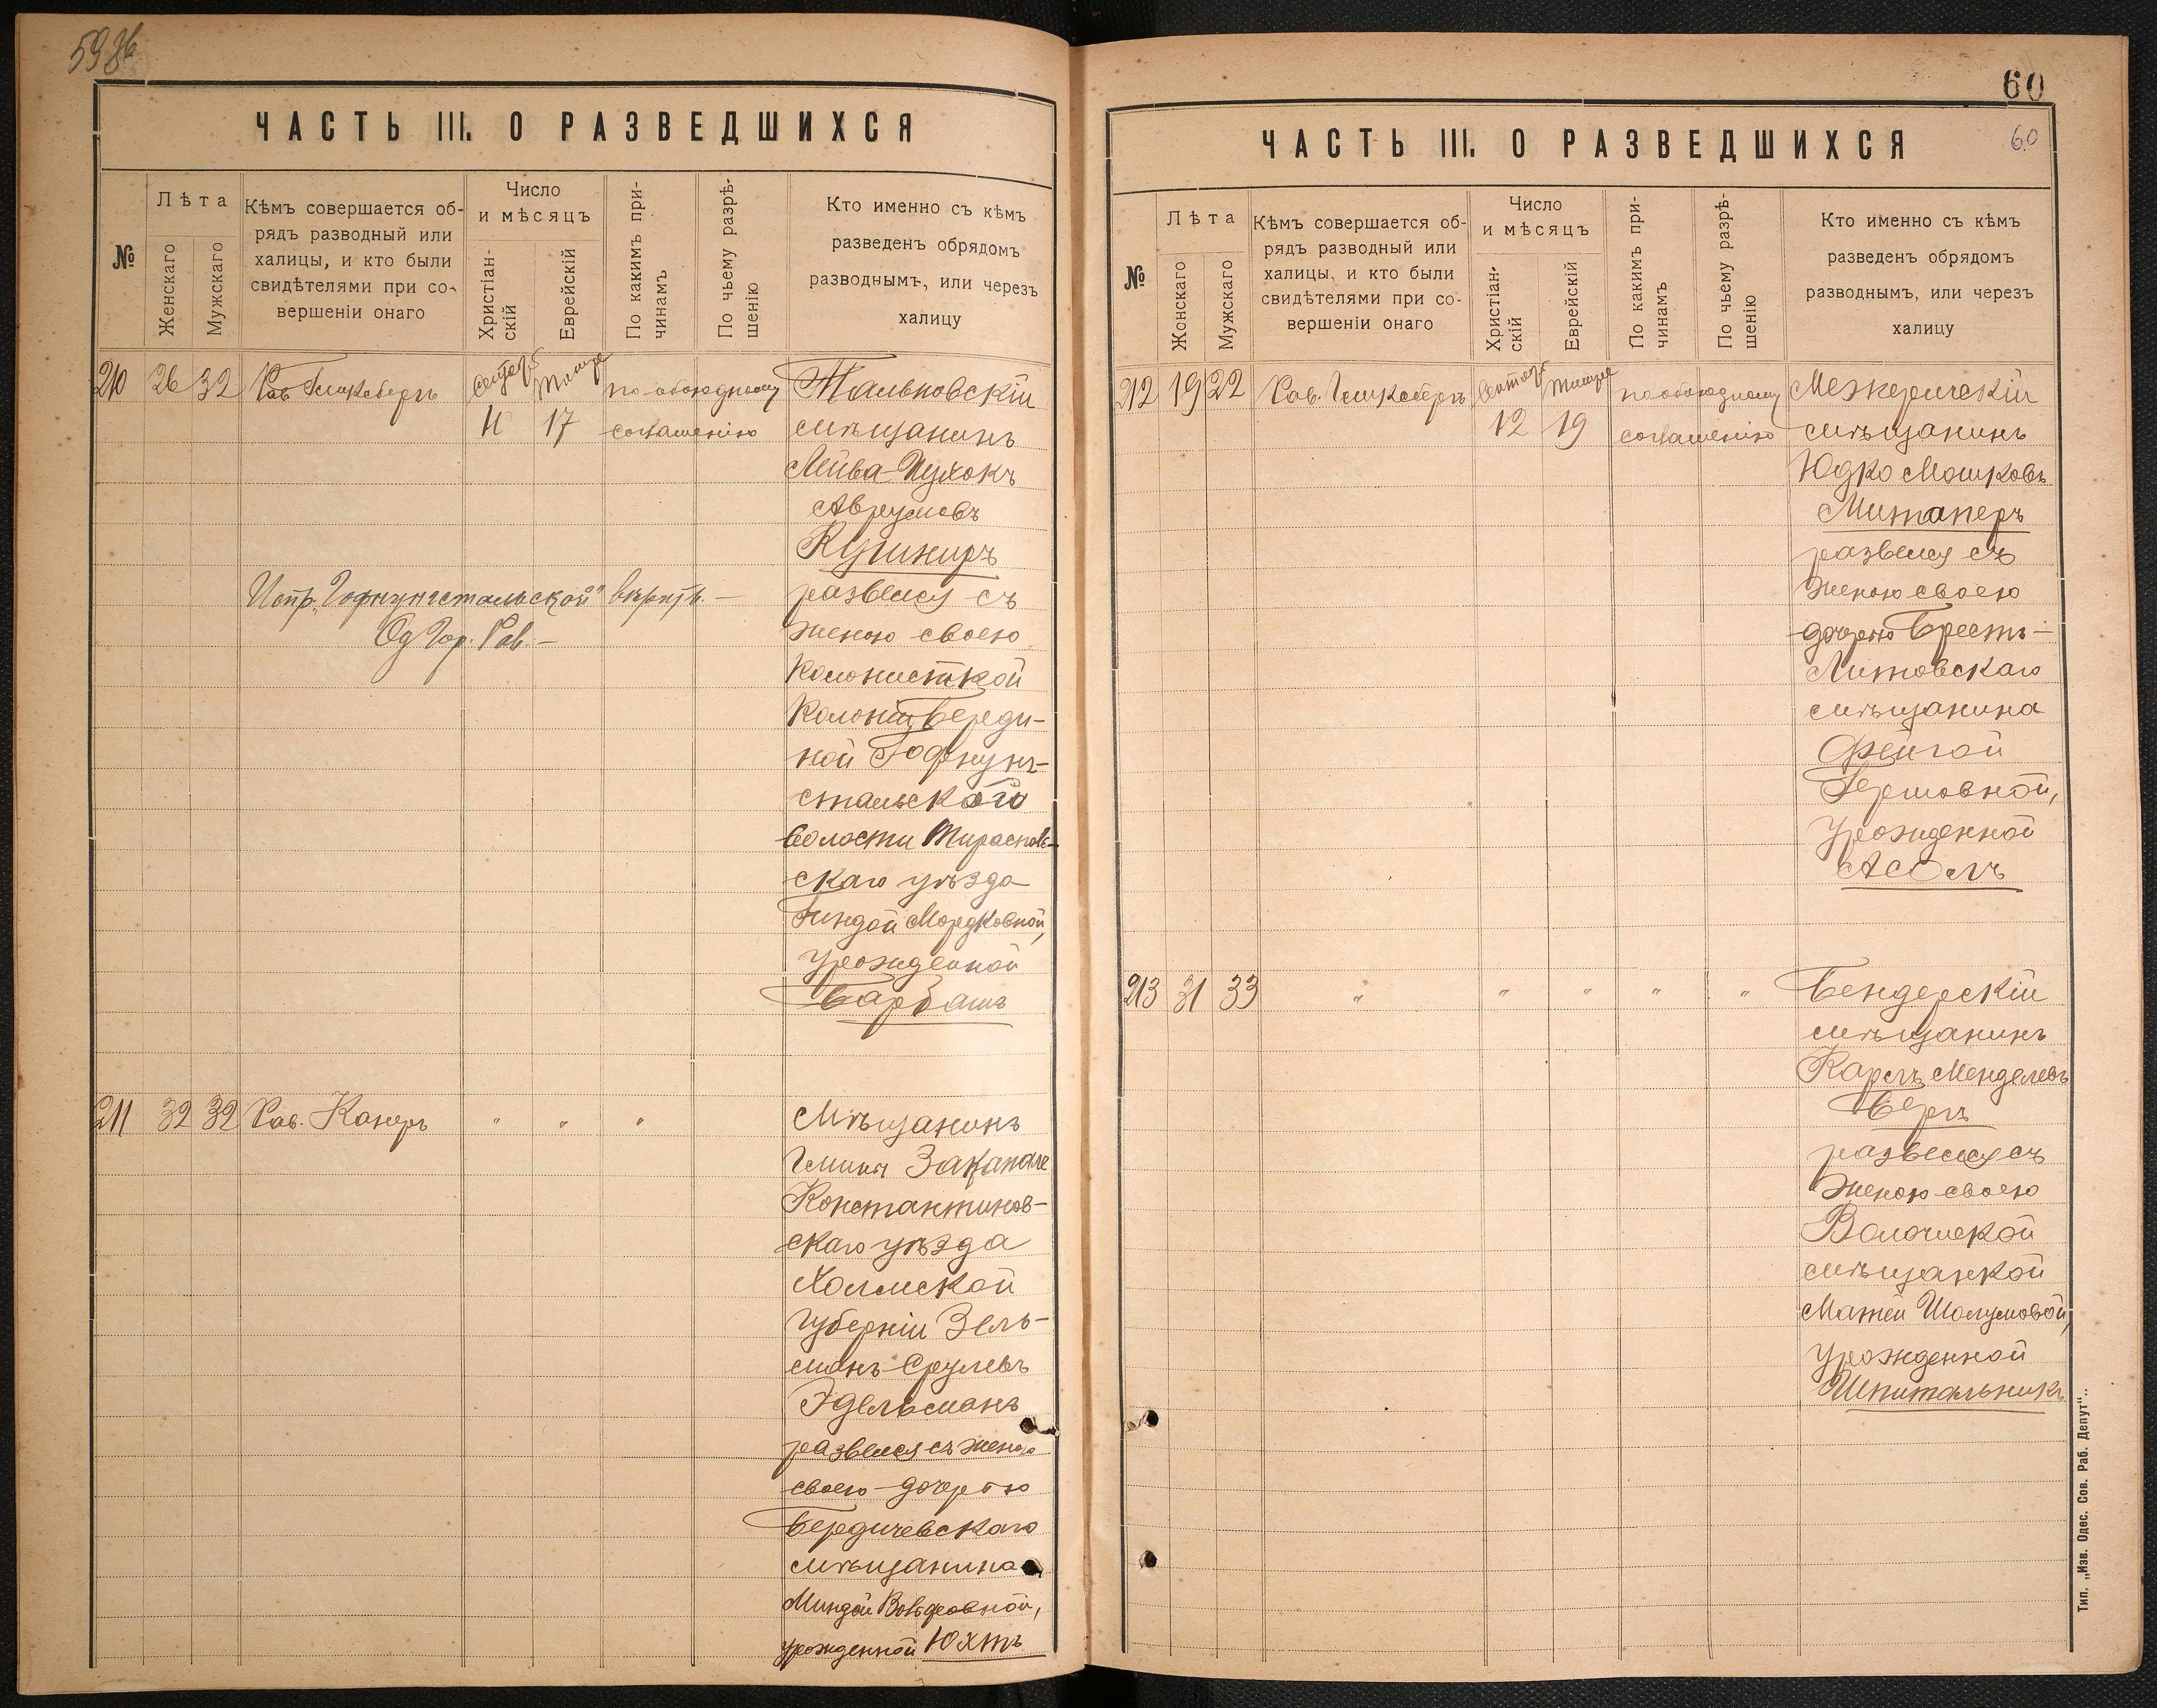 59 об
ЧАСТЬ III. О РАЗВЕДШИХСЯ
№
Лѣта
Женскаго
Мужскаго
Кѣмъ совершается об-
рядъ разводный или
халицы, и кто были
свидѣтелями при со-
вершеніи онаго
Число
и мѣсяцъ
Христіан-
скій
Еврейскій
По какимъ при-
чинамъ
По чьему разрѣ-
шенію
Кто именно съ кѣмъ
разведенъ обрядомъ
разводнымъ, или черезъ
халицу
210 26 32 Рав. Тишре по обоюдному
17 согласенію
Тальновскій
мѣщанинъ
Аврумовъ
Кушниръ
развелся съ
женою своею
колонисткой
Колоніи Береди-
ной Гофнунг-
стальскаго
волости Тирасполь-
скаго уѣзда
Гиндой Мордковной,
урожденной
Барбашъ
Испр. „Гофнунгстальской" вѣрить. —
Од. Гор. Рав. —
211 32 32 Рав. Канеръ " " "
Мѣщанинъ
Гмины
Константинов-
скаго уѣзда
Холмской
губерніи Зель-
манъ Срулевъ
Эдельманъ
развелся съ женою
своею дочерью
Бердичевскаго
мѣщанина
Миндой Вольфовной,
урожденной Юхтъ
60
ЧАСТЬ III. О РАЗВЕДШИХСЯ
60
№
Лѣта
Жонскаго
Мужскаго
Кѣмъ совершается об-
рядъ разводный или
халицы, и кто были
свидѣтелями при со-
вершеніи онаго
Число
и мѣсяцъ
Христіан-
скій
Еврейскій
По какимъ при-
чинамъ
По чьему разрѣ-
шенію
Кто именно съ кѣмъ
разведенъ обрядомъ
разводнымъ, или черезъ
халицу
212 19 22 Рав. Тишре по обоюдному
12 19 согласенію
Межеричскій
мѣщанинъ
Юдко Мошковъ
Митаперъ
развелся съ
женою своею
дочерью Брестъ-
Литовскаго
мѣщанина
Фейгой
Гершовной,
урожденной
213 31 33 " " " " "
Бендерскій
мѣщанинъ
Карлъ Менделевъ
Бергъ
развелся съ
женою своею
Волочиской
мѣщанкой
Шолумовой,
урожденной
Шпитальникъ
Тип. „Изв. Одес. Сов. Раб. Депут"..